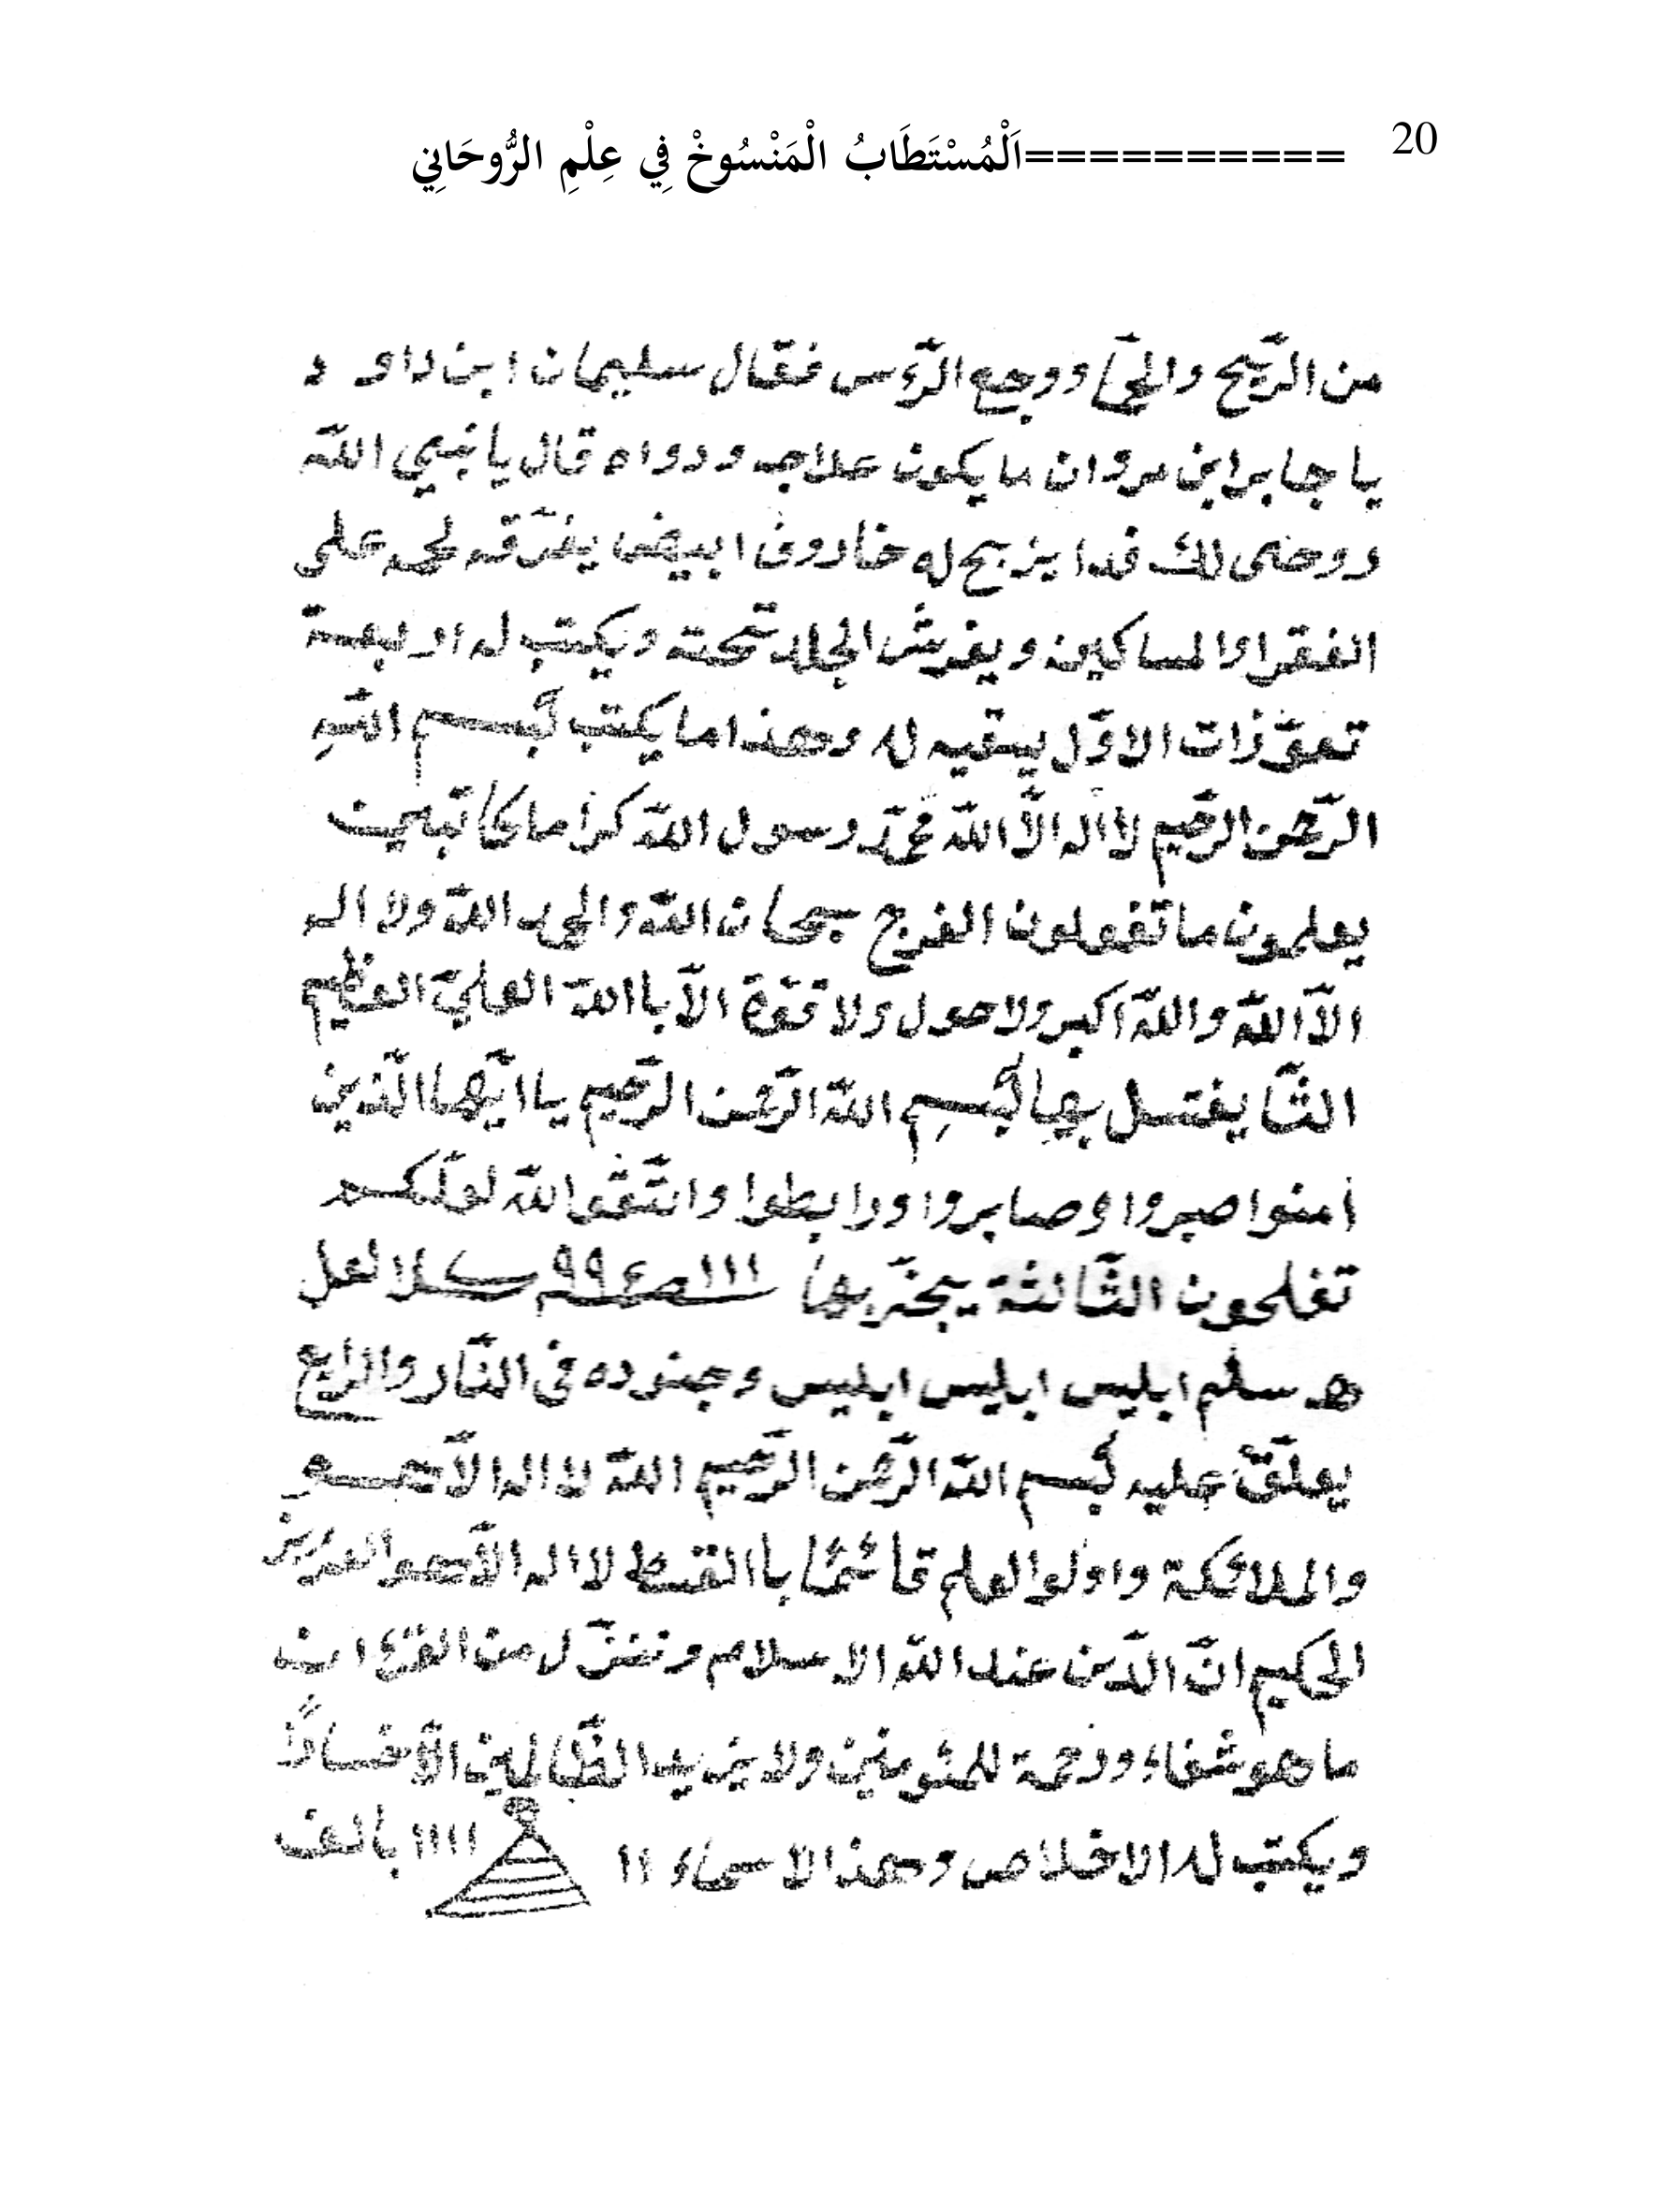 20 ==========اَلْمُسْتَطَابُ الْمَنْسُوخْ فِي عِلْمِ الرُّوحَانِي
من الرّيح والحمّا ووجع الرّءس فقال سليمان ابن داو د
يا جابر ابن مروان ما يكون علاجه ودواه قال يا نبيي اللّه
روحى لك فدا يذبح له خاروف ابيض يفرّقه لحمه على
الفقرا والمساكين ويفرش الجلد تحته ويكتب له اربعة
تعوّذات الاوّل يسقيه له وهذا ما يكتب بسم اللّهِ
الرّحمن الرّحيم لا اله الاّ اللّه محمّد رسول اللّه كراما كاتبين
يعلمون ما تفعلون الفرج سبحان اللّه والحمد اللّه ولا اله
الاّ اللّه واللّه اكبر ولا حول ولا قوّة الاّ باالله العليّ العظيم
الثّا يغتسل بها بسمِ اللّه الرّحمن الرّحيم يا ايّها الّذين
امنوا صبروا وصابروا ورابطوا واتّقوا اللّه لعلّكم
تفلحون الثّالثة يبخّر بها ااا ٩٩ لا لعل
هـ سلم ابليس ابليس ابليس وجنوده فى النّار والرابع
يعلّق عليه بسم اللّه الرّحمن الرّحيم اللّه لا اله الاّ هو
والملائكة واولوا العلم قائمًا باالقسط لا اله الاّ هو العزيز
الحكيم انّ الدّين عند اللّه الاسلام وننزّل من القرءان
ما هو شفاء ورحمة للمئومنين ولا يزيد الظّالمين الاّ خسارًا
ويكتب له الاخلاص وهذ الاسماء اا اااا باالف